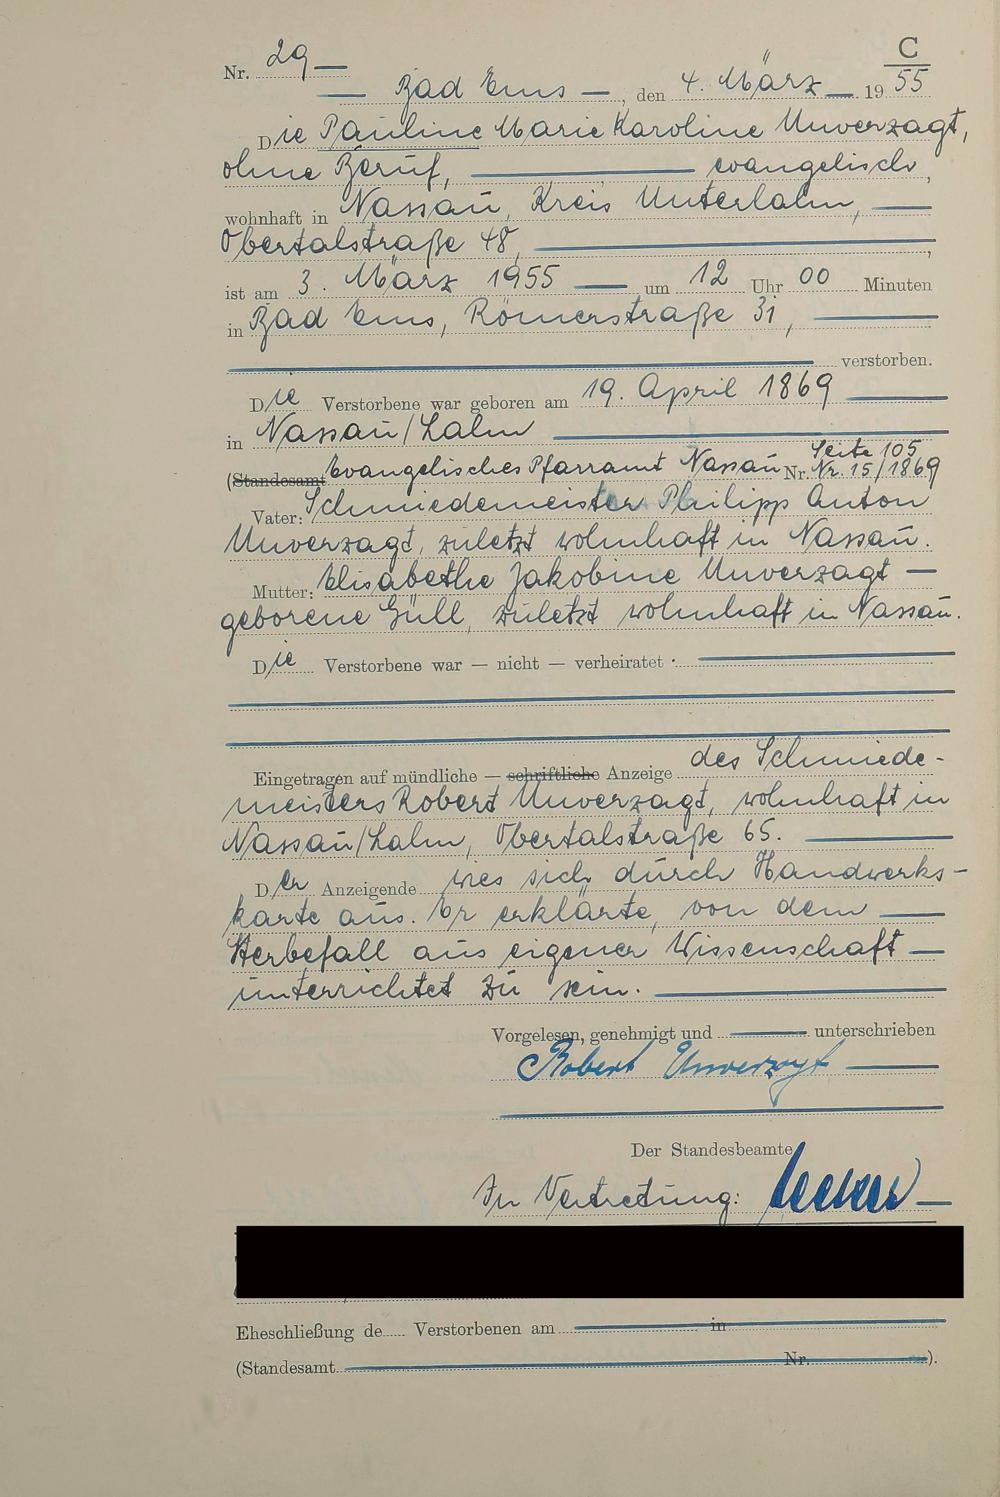 C
Nr. 29 —
— Bad Ems —, den 4. März — 19 55
Die Pauline Marie Karoline Unverzagt,
ohne Beruf, — evangelisch,
wohnhaft in Nassau, Kreis Unterlahn, —
Obertalstraße 48, —,
ist am 3. März 1955 — um 12 Uhr 00 Minuten
in Bad Ems, Römerstraße 31, —
— verstorben.
Die Verstorbene war geboren am 19. April 1869 —
in Nassau/Lahn —
Seite 105
(Standesamt Evangelisches Pfarramt Nassau Nr. Nr. 15/1869
Vater: Schmiedemeister Philipp Anton
Unverzagt, zuletzt wohnhaft in Nassau.
Mutter: Elisabethe Jakobine Unverzagt —
geborene Güll, zuletzt wohnhaft in Nassau.
Die Verstorbene war — nicht — verheiratet —
Eingetragen auf mündliche — schriftliche Anzeige des Schmiede-
meisters Robert Unverzagt, wohnhaft in
Nassau/Lahn, Obertalstraße 65. —
Der Anzeigende wies sich durch Handwerks-
karte aus. Er erklärte, von dem —
Sterbefall aus eigener Wissenschaft —
unterrichtet zu sein. —
Vorgelesen, genehmigt und — unterschrieben
Robert Unverzagt —
Der Standesbeamte
In Vertretung: —
Eheschließung de..... Verstorbenen am — in —
(Standesamt — Nr. —).